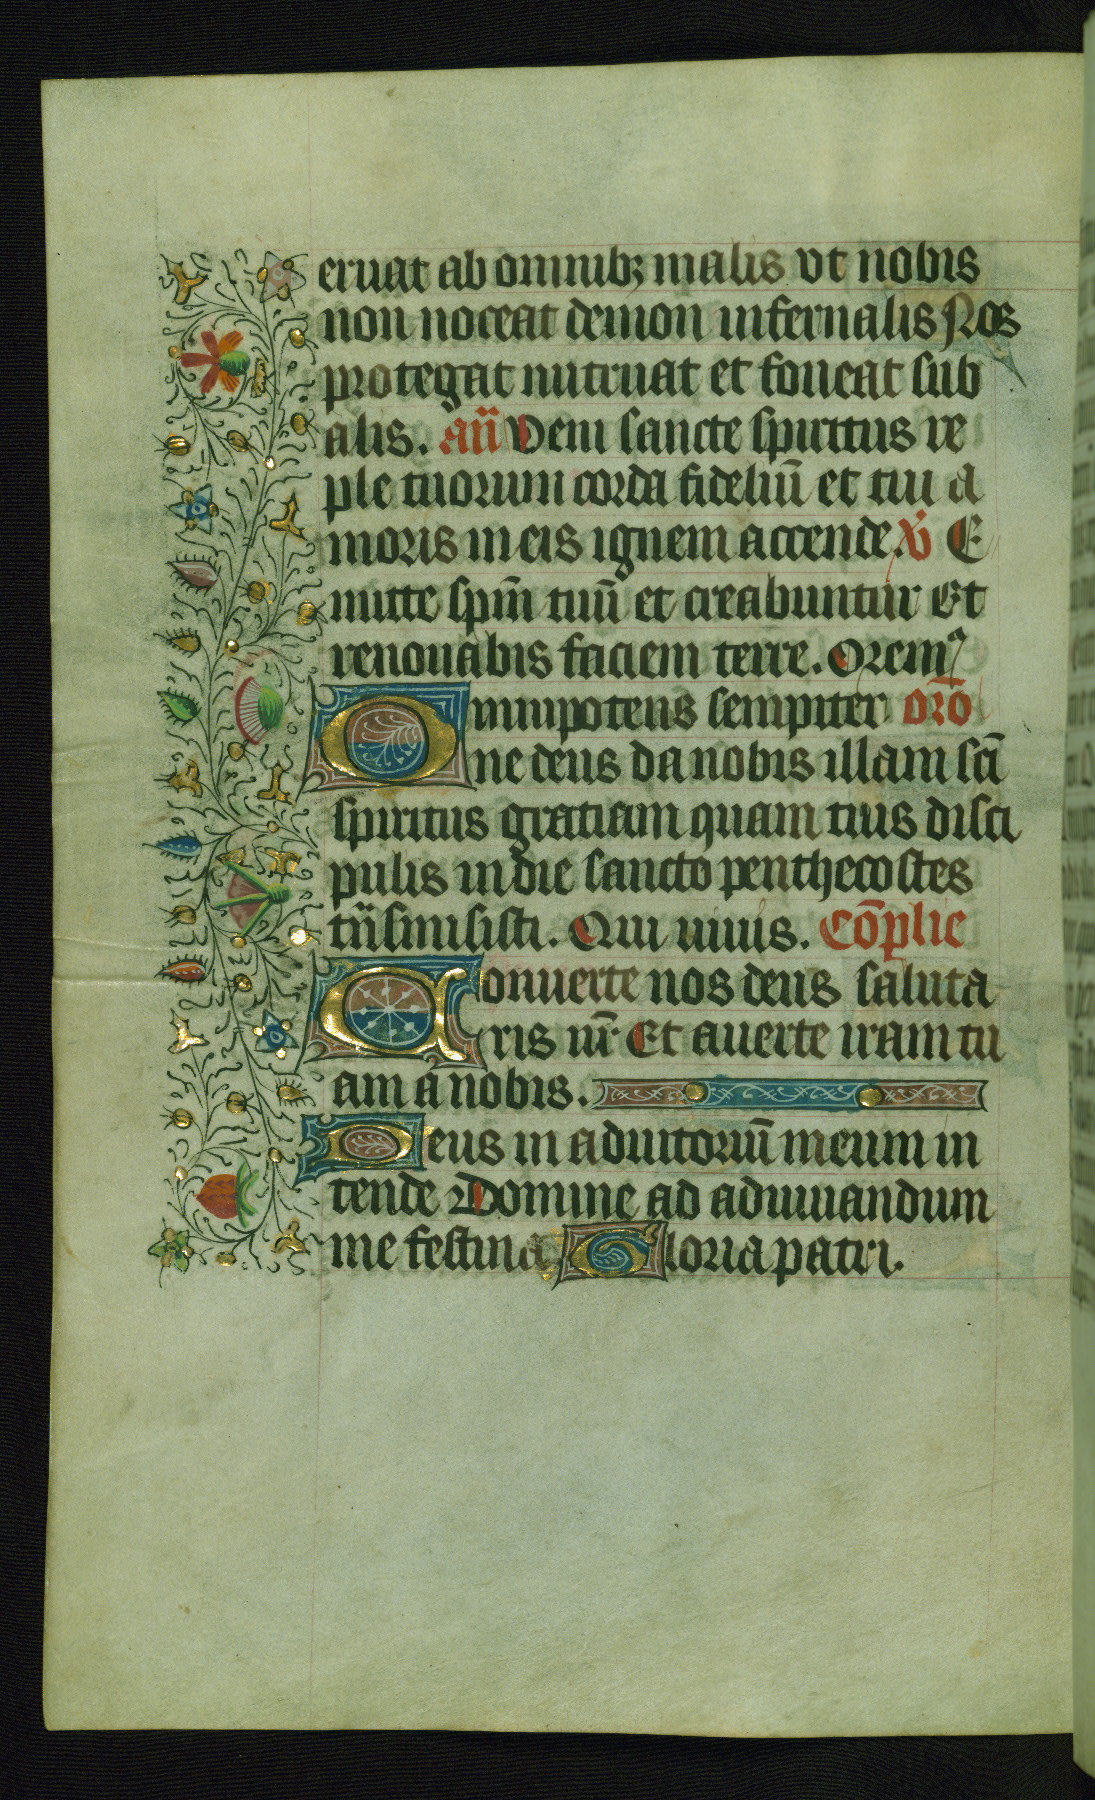 eruat ab omnibꝫ malis vt nobis
non noceat demon infernalis Nos
protegat nutruat et foueat sub
alis. an̄ Veni sancte spiritus re
ple tuorum corda fideliū et tui a
moris in eis ignem accende. ℣ E
mitte spm̄ tuū et creabuntur Et
renouabis faciem terre. Oremꝰ
Omnipotens sempiter oro̅
ne deus da nobis illam sc̄i
spiritus gratiam quam tuis disci
pulis in die sancto penthecostes
tn̄smisisti. Qui uiuis. Co̅plie
Conuerte nos deus saluta
ris nr̄ Et auerte iram tu
am a nobis.
Deus in adiutoriū meum in
tende Domine ad adiuuandum
me festina Gloria patri.